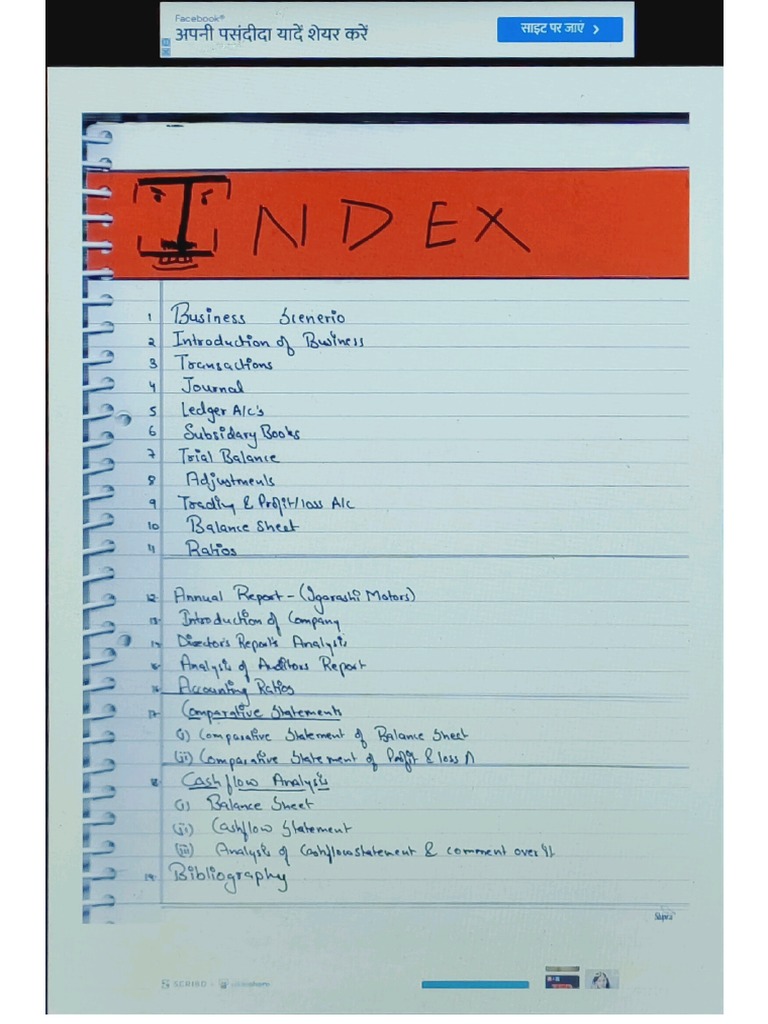 Facebook®
अपनी पसंदीदा यादें शेयर करें
साइट पर जाएं
INDEX
1 Business Scenerio
2 Introduction of Business
3 Transactions
4 Journal
5 Ledger A/c's
6 Subsidary Books
7 Trial Balance
8 Adjustments
9 Trading & Profit/loss A/c
10 Balance Sheet
11 Ratios
12. Annual Report - (Igarashi Motors)
13. Introduction of Company
14. Director's Report's Analysis
15. Analysis of Auditors Report
16. Accounting Ratios
17. Comparative Statements
(i) Comparative Statement of Balance Sheet
(ii) Comparative Statement of Profit & loss A
18. Cash flow Analysis
(i) Balance Sheet
(ii) Cashflow Statement
(iii) Analysis of Cashflow statement & comment over it
19. Bibliography
SCRIBD